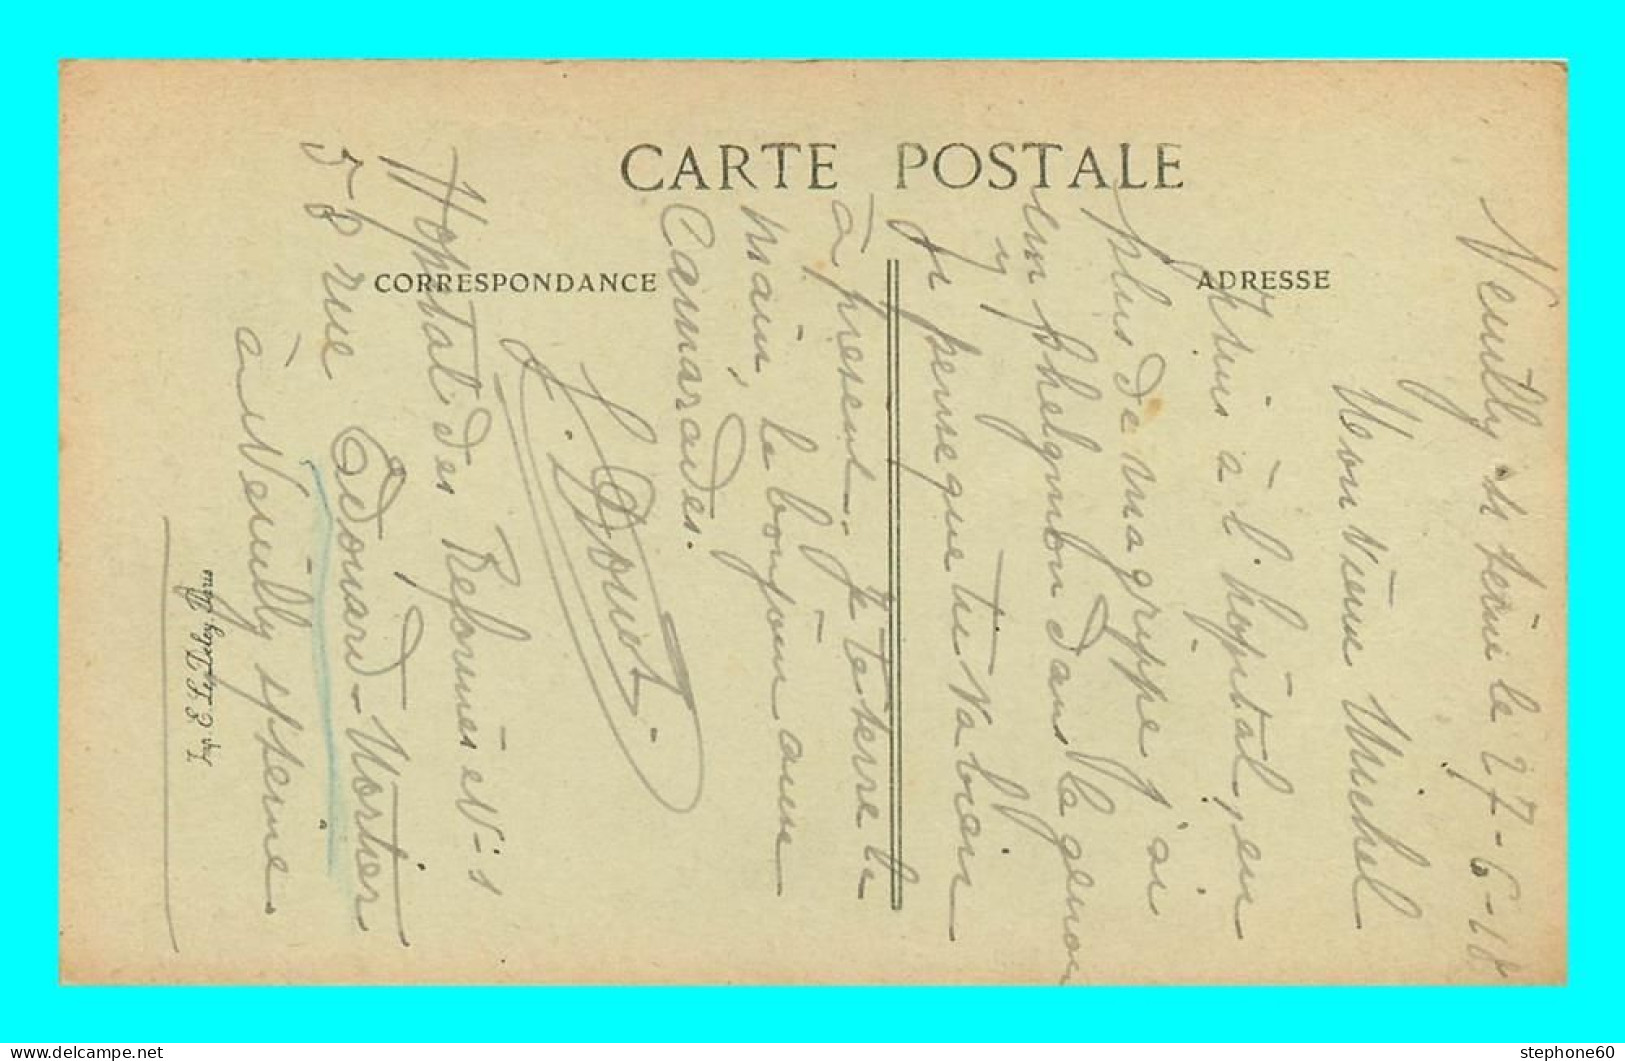 CARTE POSTALE
CORRESPONDANCE
ADRESSE
Neuilly s/s seine le 27-6-18
Mon vieux Michel
Je suis à l'hôpital, en
plus de ma grippe j'ai
un phlegmon dans le genou
Je pense que tu va bien
à présent. Je te serre la
main, le bonjour aux
Camarades.
J. Douet
Hopital des Reformés N-1
58 rue Edouard-Nortier
à Neuilly s/seine
Imp. E. Le Deley, Paris
stephone60